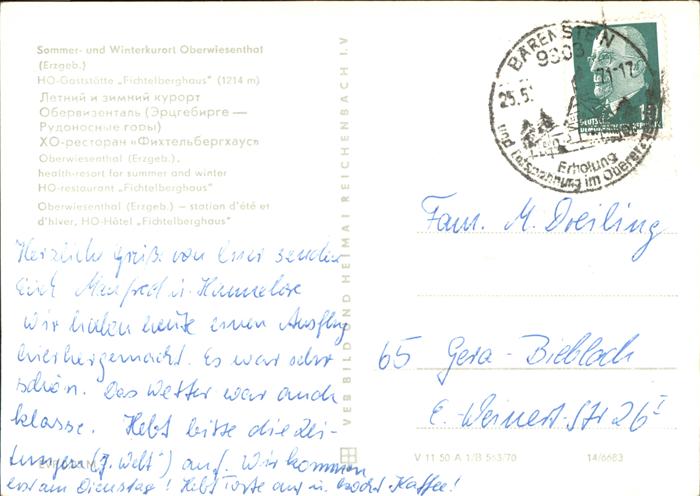 Sommer- und Winterkurort Oberwiesenthal
(Erzgeb.)
HO-Gaststätte „Fichtelberghaus" (1214 m)
Летний и зимний курорт
Обервизенталь (Эрцгебирге —
Рудоносные горы)
ХО-ресторан «Фихтельбергхаус»
Oberwiesenthal (Erzgeb.),
health-resort for summer and winter
HO-restaurant „Fichtelberghaus"
Oberwiesenthal (Erzgeb.) – station d'été et
d'hiver, HO-Hôtel „Fichtelberghaus"
Herzliche Grüße von hier senden
Euch Manfred u. Hannelore
Wir haben heute einen Ausflug
hierhergemacht. Es war sehr
schön. Das Wetter war auch
klasse. Hebt bitte die Zei-
tungen (J. Welt) auf. Wir kommen
erst am Dienstag! Hebt Torte auf u. kocht Kaffee!
VEB BILD UND HEIMAT REICHENBACH I. V
BÄRENSTEIN
9303
25.5. 71-17
Erholung
und Entspannung im Oberen
DEUTSCHE
DEMOKRATISCHE
Fam. M. Dreiling
65 Gera-Bieblach
E.-Weinert-Str 26 I
V 11 50 A 1/B 563/70 14/6683